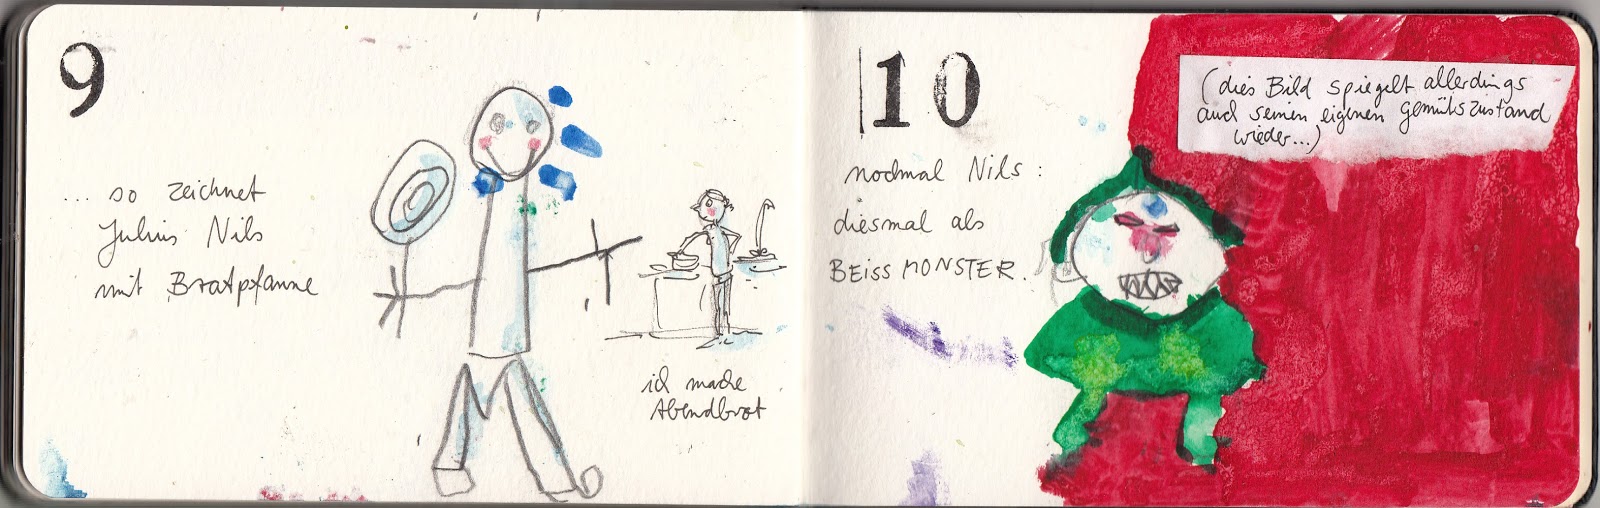 9
... so zeichnet
Julius Nils
mit Bratpfanne
ich mache
Abendbrot
10
nochmal Nils :
diesmal als
BEISSMONSTER.
(dies Bild spiegelt allerdings
auch seinen eigenen Gemütszustand
wieder...)